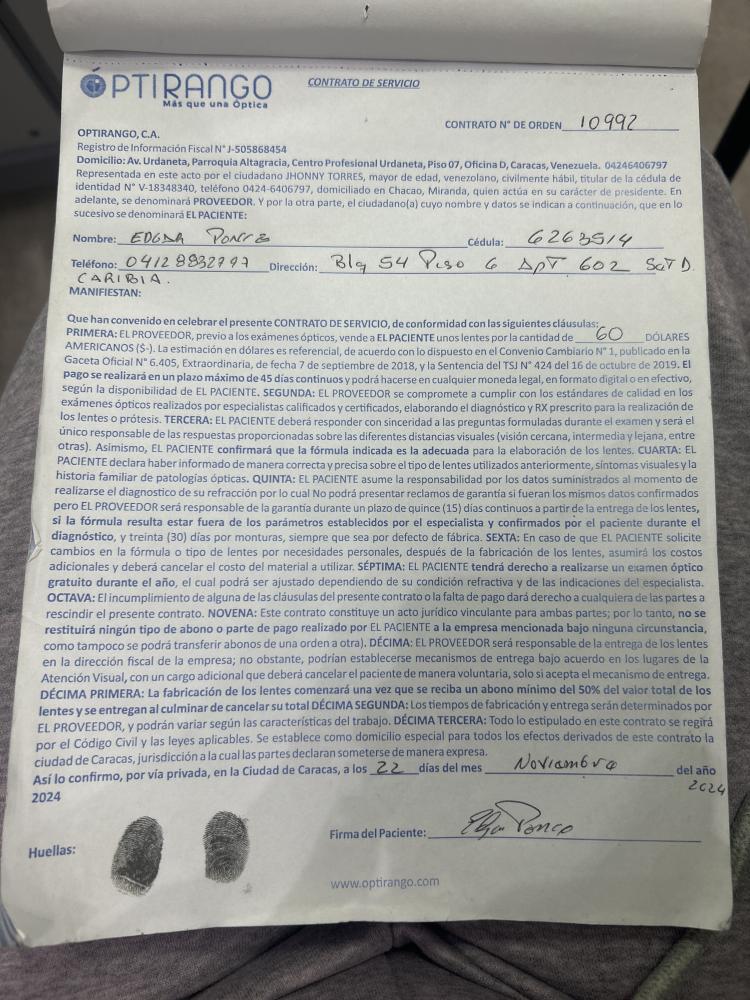 OPTIRANGO
Más que una Óptica
CONTRATO DE SERVICIO
CONTRATO N° DE ORDEN 10992
OPTIRANGO, C.A.
Registro de Información Fiscal N° J-505868454
Domicilio: Av. Urdaneta, Parroquia Altagracia, Centro Profesional Urdaneta, Piso 07, Oficina D, Caracas, Venezuela. 04246406797
Representada en este acto por el ciudadano JHONNY TORRES, mayor de edad, venezolano, civilmente hábil, titular de la cédula de
identidad N° V-18348340, teléfono 0424-6406797, domiciliado en Chacao, Miranda, quien actúa en su carácter de presidente. En
adelante, se denominará PROVEEDOR. Y por la otra parte, el ciudadano(a) cuyo nombre y datos se indican a continuación, que en lo
sucesivo se denominará EL PACIENTE:
Nombre: EDGAR PONCE Cédula: 6263514
Teléfono: 04128832797 Dirección: Blq 54 Piso 6 APT 602 SCT D.
CARIBIA.
MANIFIESTAN:
Que han convenido en celebrar el presente CONTRATO DE SERVICIO, de conformidad con las siguientes cláusulas:
PRIMERA: EL PROVEEDOR, previo a los exámenes ópticos, vende a EL PACIENTE unos lentes por la cantidad de 60 DÓLARES
AMERICANOS ($-). La estimación en dólares es referencial, de acuerdo con lo dispuesto en el Convenio Cambiario N° 1, publicado en la
Gaceta Oficial N° 6.405, Extraordinaria, de fecha 7 de septiembre de 2018, y la Sentencia del TSJ N° 424 del 16 de octubre de 2019. El
pago se realizará en un plazo máximo de 45 días continuos y podrá hacerse en cualquier moneda legal, en formato digital o en efectivo,
según la disponibilidad de EL PACIENTE. SEGUNDA: EL PROVEEDOR se compromete a cumplir con los estándares de calidad en los
exámenes ópticos realizados por especialistas calificados y certificados, elaborando el diagnóstico y RX prescrito para la realización de
los lentes o prótesis. TERCERA: EL PACIENTE deberá responder con sinceridad a las preguntas formuladas durante el examen y será el
único responsable de las respuestas proporcionadas sobre las diferentes distancias visuales (visión cercana, intermedia y lejana, entre
otras). Asimismo, EL PACIENTE confirmará que la fórmula indicada es la adecuada para la elaboración de los lentes. CUARTA: EL
PACIENTE declara haber informado de manera correcta y precisa sobre el tipo de lentes utilizados anteriormente, síntomas visuales y la
historia familiar de patologías ópticas. QUINTA: EL PACIENTE asume la responsabilidad por los datos suministrados al momento de
realizarse el diagnostico de su refracción por lo cual No podrá presentar reclamos de garantía si fueran los mismos datos confirmados
pero EL PROVEEDOR será responsable de la garantía durante un plazo de quince (15) días continuos a partir de la entrega de los lentes,
si la fórmula resulta estar fuera de los parámetros establecidos por el especialista y confirmados por el paciente durante el
diagnóstico, y treinta (30) días por monturas, siempre que sea por defecto de fábrica. SEXTA: En caso de que EL PACIENTE solicite
cambios en la fórmula o tipo de lentes por necesidades personales, después de la fabricación de los lentes, asumirá los costos
adicionales y deberá cancelar el costo del material a utilizar. SÉPTIMA: EL PACIENTE tendrá derecho a realizarse un examen óptico
gratuito durante el año, el cual podrá ser ajustado dependiendo de su condición refractiva y de las indicaciones del especialista.
OCTAVA: El incumplimiento de alguna de las cláusulas del presente contrato o la falta de pago dará derecho a cualquiera de las partes a
rescindir el presente contrato. NOVENA: Este contrato constituye un acto jurídico vinculante para ambas partes; por lo tanto, no se
restituirá ningún tipo de abono o parte de pago realizado por EL PACIENTE a la empresa mencionada bajo ninguna circunstancia,
como tampoco se podrá transferir abonos de una orden a otra). DÉCIMA: EL PROVEEDOR será responsable de la entrega de los lentes
en la dirección fiscal de la empresa; no obstante, podrían establecerse mecanismos de entrega bajo acuerdo en los lugares de la
Atención Visual, con un cargo adicional que deberá cancelar el paciente de manera voluntaria, solo si acepta el mecanismo de entrega.
DÉCIMA PRIMERA: La fabricación de los lentes comenzará una vez que se reciba un abono mínimo del 50% del valor total de los
lentes y se entregan al culminar de cancelar su total DÉCIMA SEGUNDA: Los tiempos de fabricación y entrega serán determinados por
EL PROVEEDOR, y podrán variar según las características del trabajo. DÉCIMA TERCERA: Todo lo estipulado en este contrato se regirá
por el Código Civil y las leyes aplicables. Se establece como domicilio especial para todos los efectos derivados de este contrato la
ciudad de Caracas, jurisdicción a la cual las partes declaran someterse de manera expresa.
Así lo confirmo, por vía privada, en la Ciudad de Caracas, a los 22 días del mes Noviembre del año
2024 2024
Firma del Paciente: Edgar Ponce
Huellas:
www.optirango.com